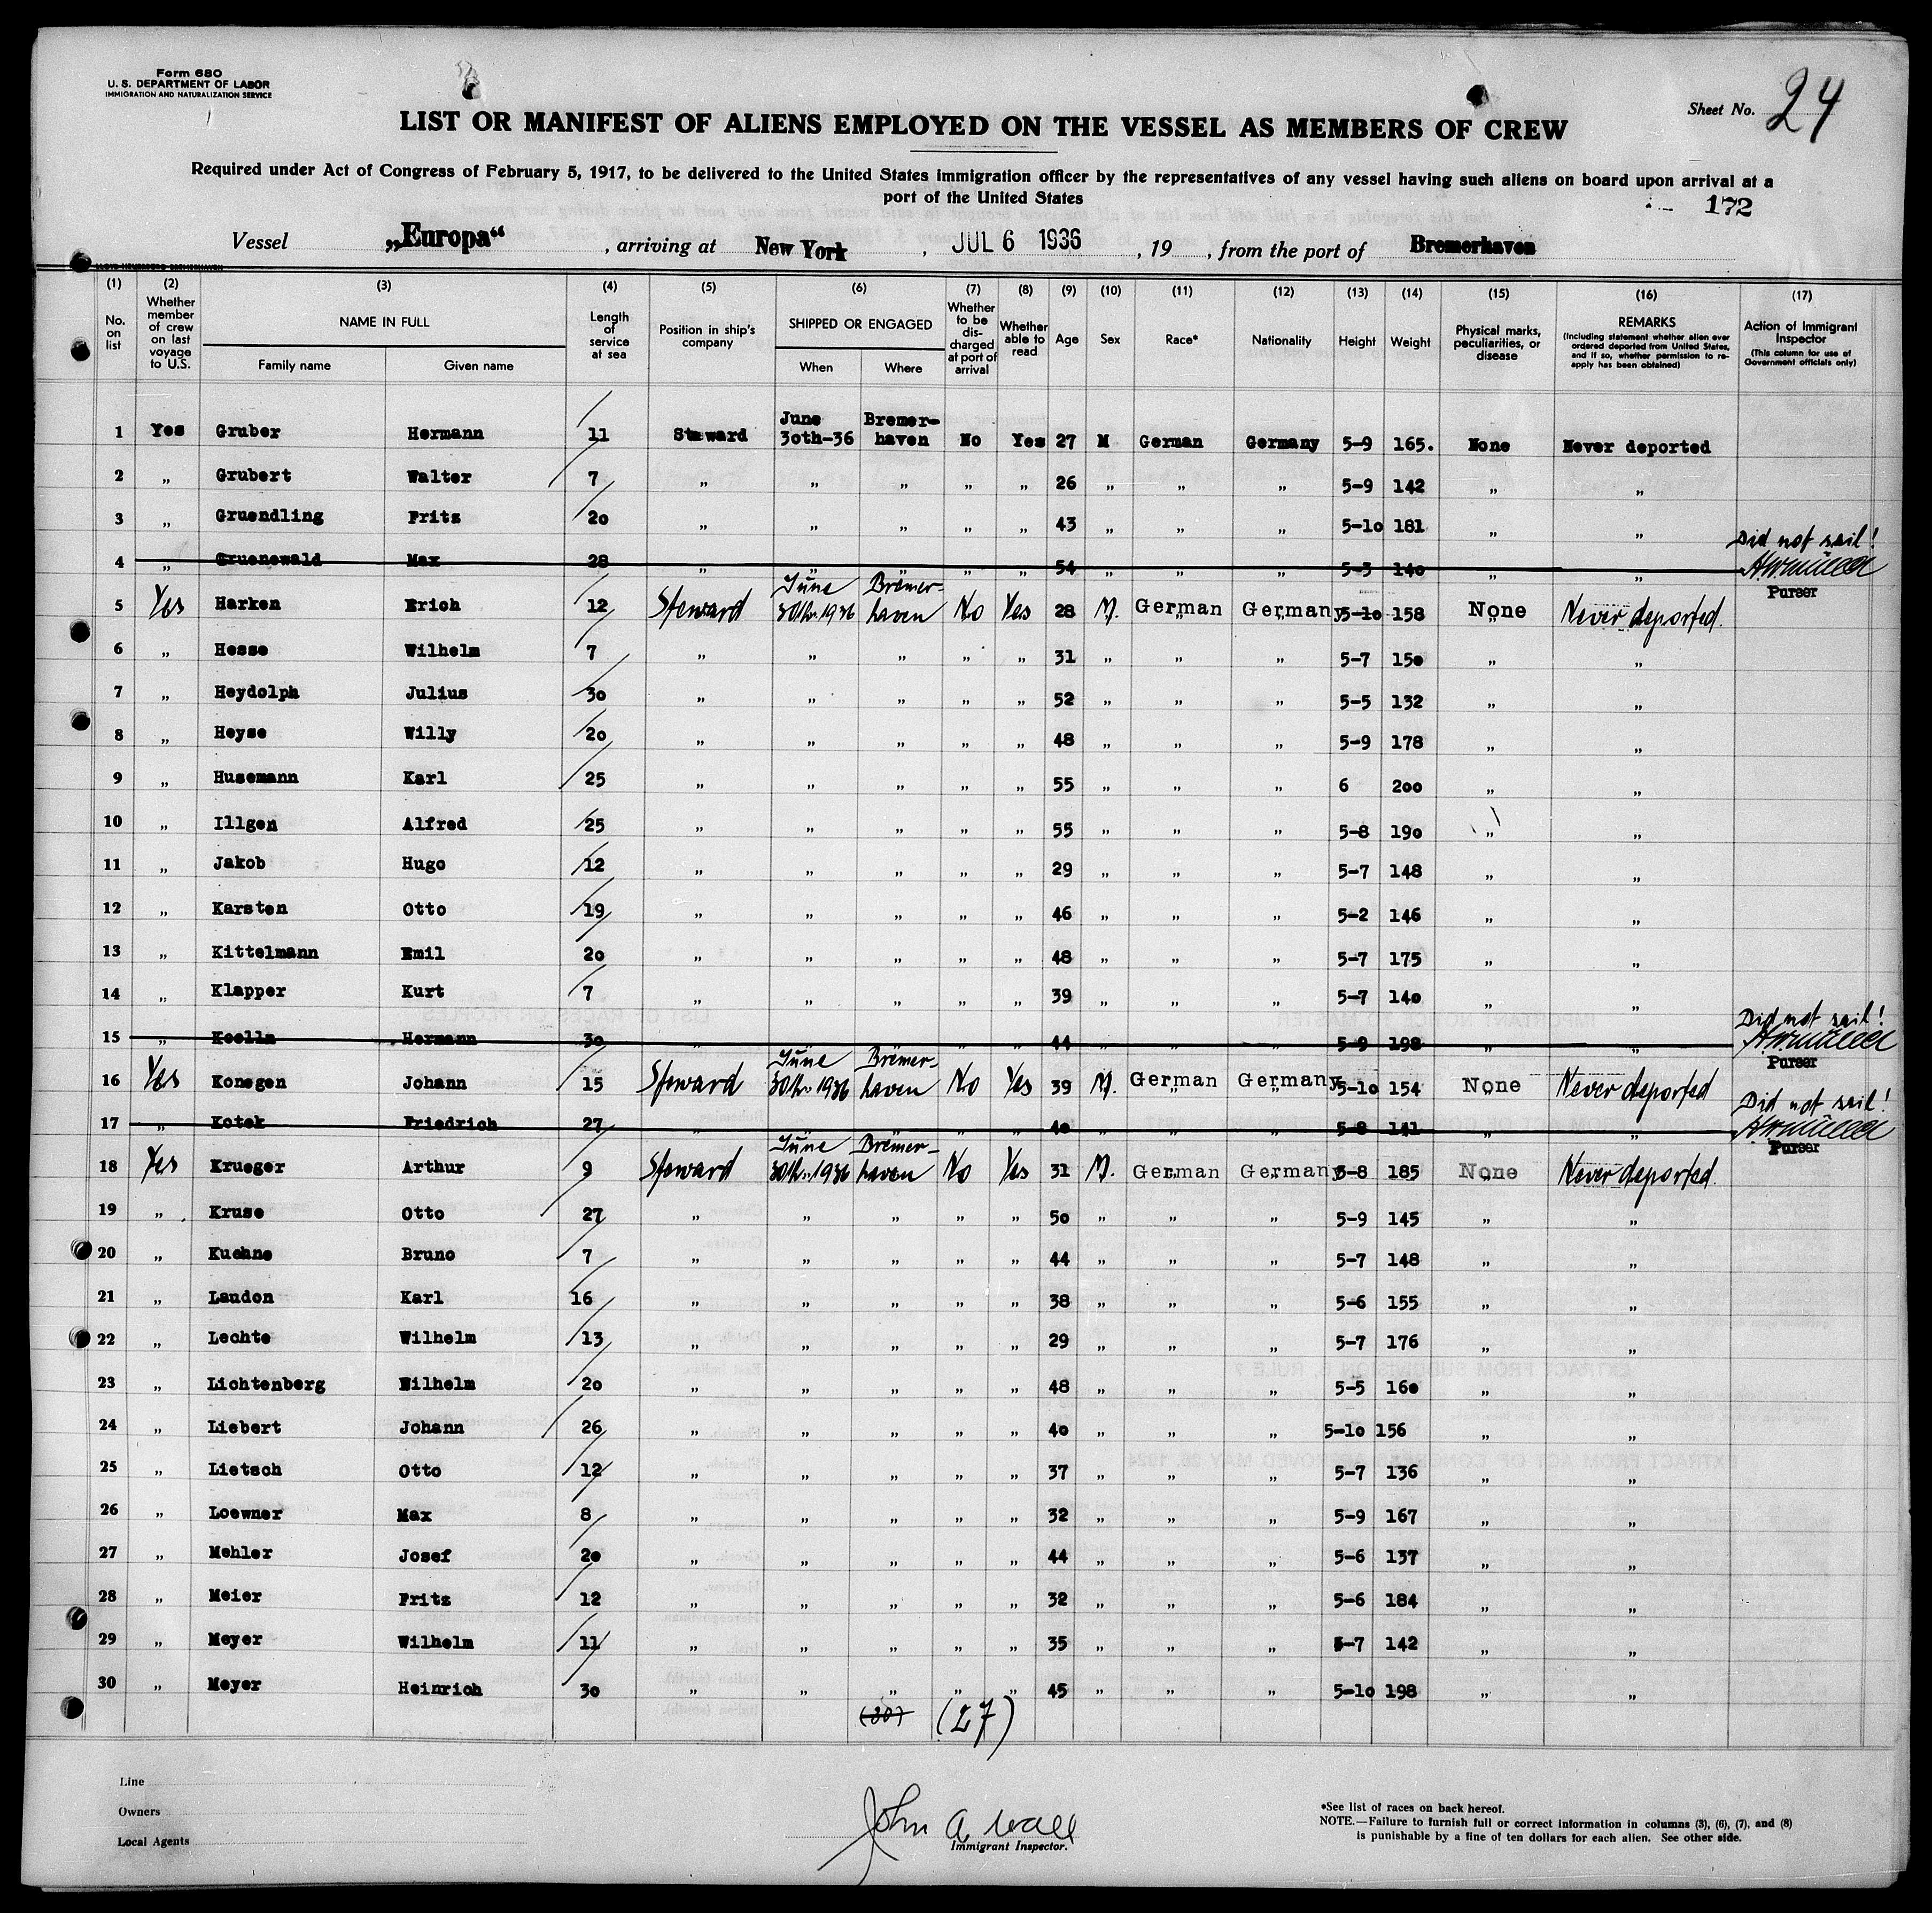 Form 680
U. S. DEPARTMENT OF LABOR
IMMIGRATION AND NATURALIZATION SERVICE
Sheet No. 24
LIST OR MANIFEST OF ALIENS EMPLOYED ON THE VESSEL AS MEMBERS OF CREW
Required under Act of Congress of February 5, 1917, to be delivered to the United States immigration officer by the representatives of any vessel having such aliens on board upon arrival at a
port of the United States
172
Vessel „Europa“ , arriving at New York , JUL 6 1936 , 19 , from the port of Bremerhaven
(1) No. on list (2) Whether member of crew on last voyage to U.S. (3) NAME IN FULL Family name Given name (4) Length of service at sea (5) Position in ship's company (6) SHIPPED OR ENGAGED When Where (7) Whether to be dis-charged at port of arrival (8) Whether able to read (9) Age (10) Sex (11) Race* (12) Nationality (13) Height (14) Weight (15) Physical marks, peculiarities, or disease (16) REMARKS (Including statement whether alien ever ordered deported from United States, and if so, whether permission to re-apply has been obtained) (17) Action of Immigrant Inspector (This column for use of Government officials only)
1 Yes Gruber Hermann 11 Steward June 30th-36 Bremer-haven No Yes 27 M German Germany 5-9 165. None Never deported
2 „ Grubert Walter 7 „ „ „ „ „ 26 „ „ „ 5-9 142 „ „
3 „ Gruendling Fritz 20 „ „ „ „ „ 43 „ „ „ 5-10 181 „ „
4 „ Gruenewald Max 28 „ „ „ „ „ 54 „ „ „ 5-3 140 „ „ Did not sail! Purser
5 Yes Harken Erich 12 Steward June 30th 1936 Bremer-haven No Yes 28 M. German Germany 5-10 158 None Never deported.
6 „ Hesse Wilhelm 7 „ „ „ „ „ 31 „ „ „ 5-7 150 „ „
7 „ Heydolph Julius 30 „ „ „ „ „ 52 „ „ „ 5-5 132 „ „
8 „ Heyse Willy 20 „ „ „ „ „ 48 „ „ „ 5-9 178 „ „
9 „ Husemann Karl 25 „ „ „ „ „ 55 „ „ „ 6 200 „ „
10 „ Illgen Alfred 25 „ „ „ „ „ 55 „ „ „ 5-8 190 „ „
11 „ Jakob Hugo 12 „ „ „ „ „ 29 „ „ „ 5-7 148 „ „
12 „ Karsten Otto 19 „ „ „ „ „ 46 „ „ „ 5-2 146 „ „
13 „ Kittelmann Emil 20 „ „ „ „ „ 48 „ „ „ 5-7 175 „ „
14 „ Klapper Kurt 7 „ „ „ „ „ 39 „ „ „ 5-7 140 „ „
15 „ Koelln Hermann 30 „ „ „ „ „ 44 „ „ „ 5-9 198 „ „ Did not sail! Purser
16 Yes Konegen Johann 15 Steward June 30th 1936 Bremer-haven No Yes 39 M. German Germany 5-10 154 None Never deported
17 „ Kotek Friedrich 27 „ „ „ „ „ 40 „ „ „ 5-8 141 „ „ Did not sail! Purser
18 Yes Krueger Arthur 9 Steward June 30th 1936 Bremer-haven No Yes 31 M. German Germany 5-8 185 None Never deported.
19 „ Kruse Otto 27 „ „ „ „ „ 50 „ „ „ 5-9 145 „ „
20 „ Kuehne Bruno 7 „ „ „ „ „ 44 „ „ „ 5-7 148 „ „
21 „ Laudon Karl 16 „ „ „ „ „ 38 „ „ „ 5-6 155 „ „
22 „ Lechte Wilhelm 13 „ „ „ „ „ 29 „ „ „ 5-7 176 „ „
23 „ Lichtenberg Wilhelm 20 „ „ „ „ „ 48 „ „ „ 5-5 160 „ „
24 „ Liebert Johann 26 „ „ „ „ „ 40 „ „ „ 5-10 156 „ „
25 „ Lietsch Otto 12 „ „ „ „ „ 37 „ „ „ 5-7 136 „ „
26 „ Loewner Max 8 „ „ „ „ „ 32 „ „ „ 5-9 167 „ „
27 „ Mehler Josef 20 „ „ „ „ „ 44 „ „ „ 5-6 137 „ „
28 „ Meier Fritz 12 „ „ „ „ „ 32 „ „ „ 5-6 184 „ „
29 „ Meyer Wilhelm 11 „ „ „ „ „ 35 „ „ „ 5-7 142 „ „
30 „ Meyer Heinrich 30 „ „ „ „ „ 45 „ „ „ 5-10 198 „ „
(30) (27)
Line
Owners
Local Agents
John A. Wall
Immigrant Inspector.
*See list of races on back hereof.
NOTE.—Failure to furnish full or correct information in columns (3), (6), (7), and (8)
is punishable by a fine of ten dollars for each alien. See other side.